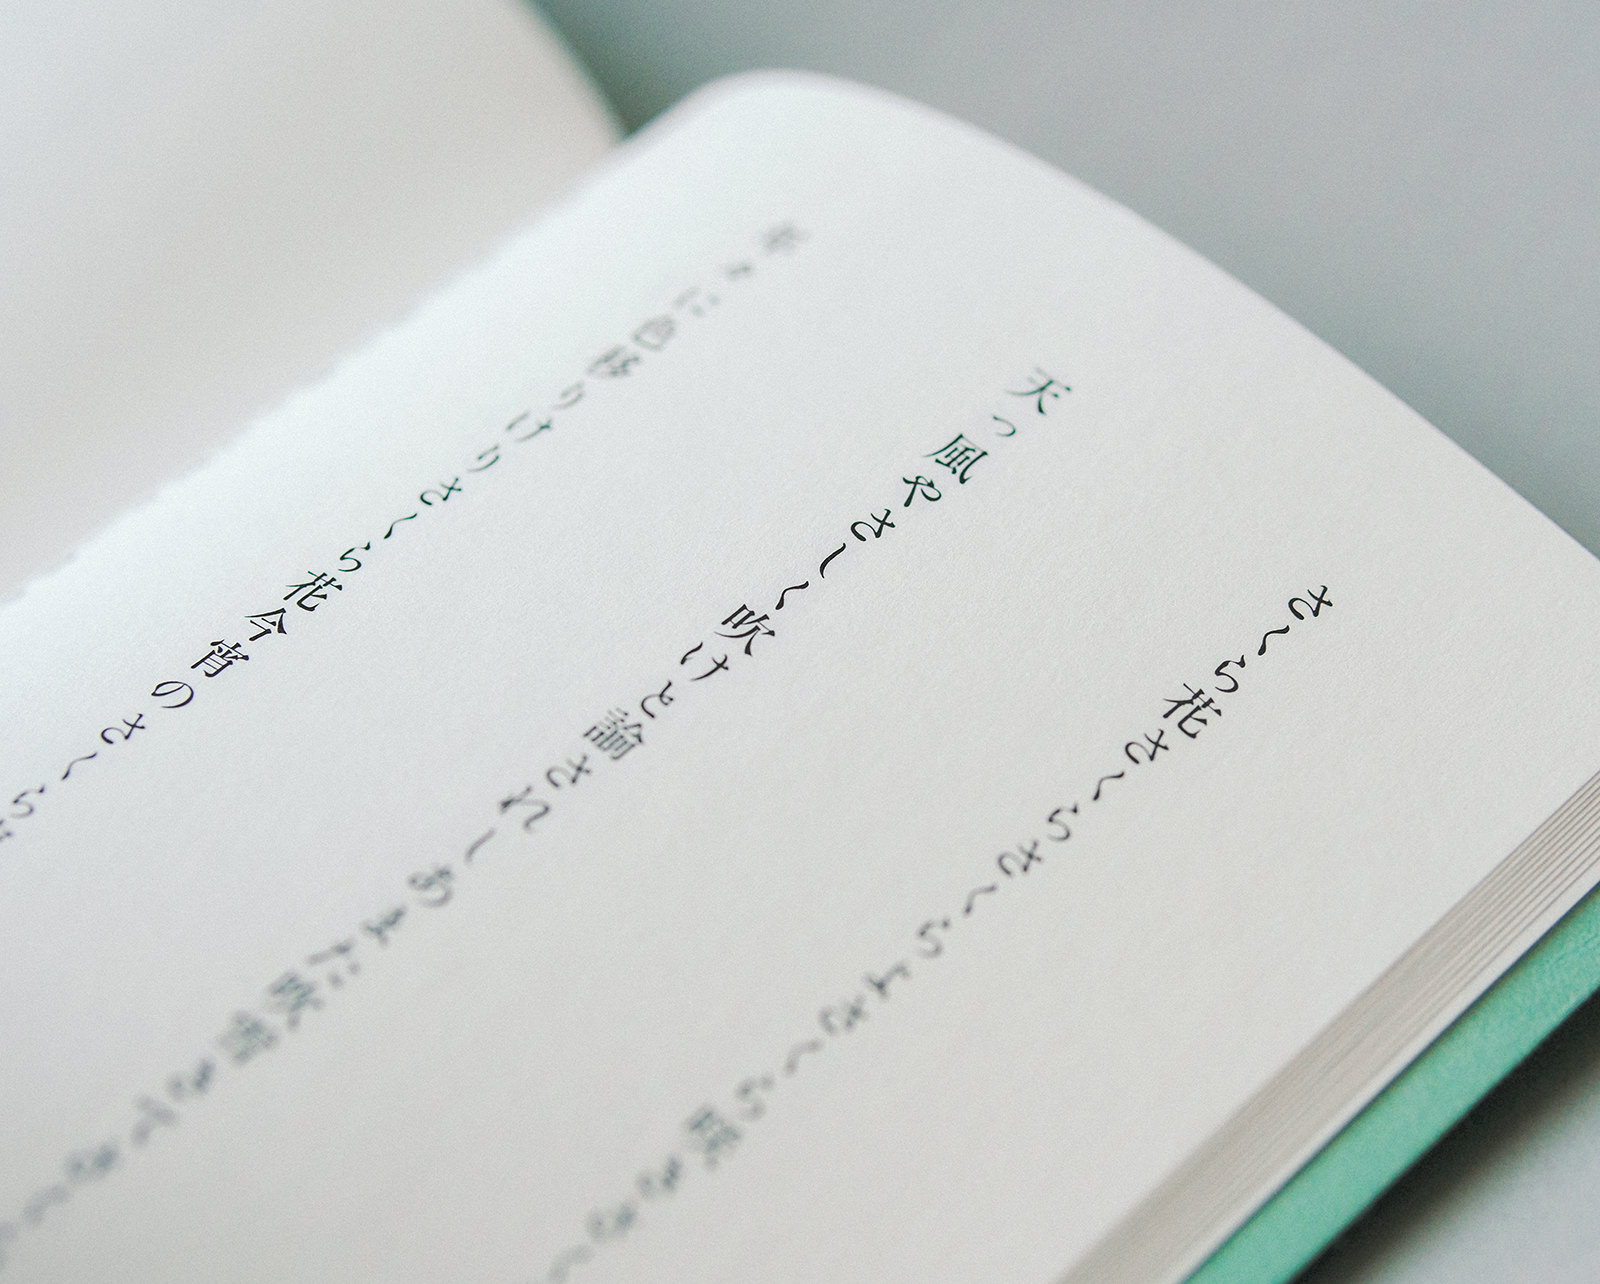 さくら花さくらさくらよさくら咲きさく
天つ風やさしく吹けと諭されしあまた吹雪きて
年々に色移りけりさくら花今宵のさくら